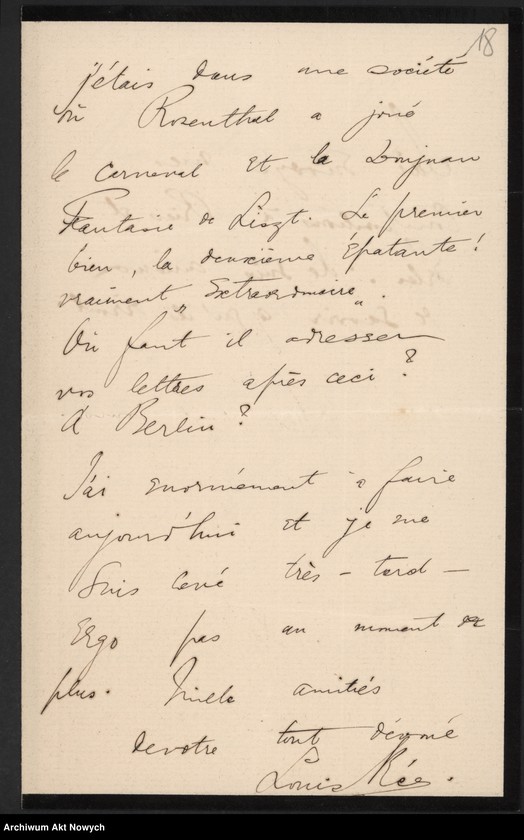 18
j'étais dans une société
où Rosenthal a joué
le Carneval et la Donjuan
Fantasie de Liszt. Le premier
bien, la deuxième Épatante!
vraiment „Extraordinaire".
Où faut il adresser
vos lettres après ceci?
à Berlin?
J'ai enormément à faire
aujourd'hui et je me
suis levé très - tard -
Ergo pas un moment de
plus. Mille amitiés
devotre tout dévoué
Louis Rée.
Archiwum Akt Nowych